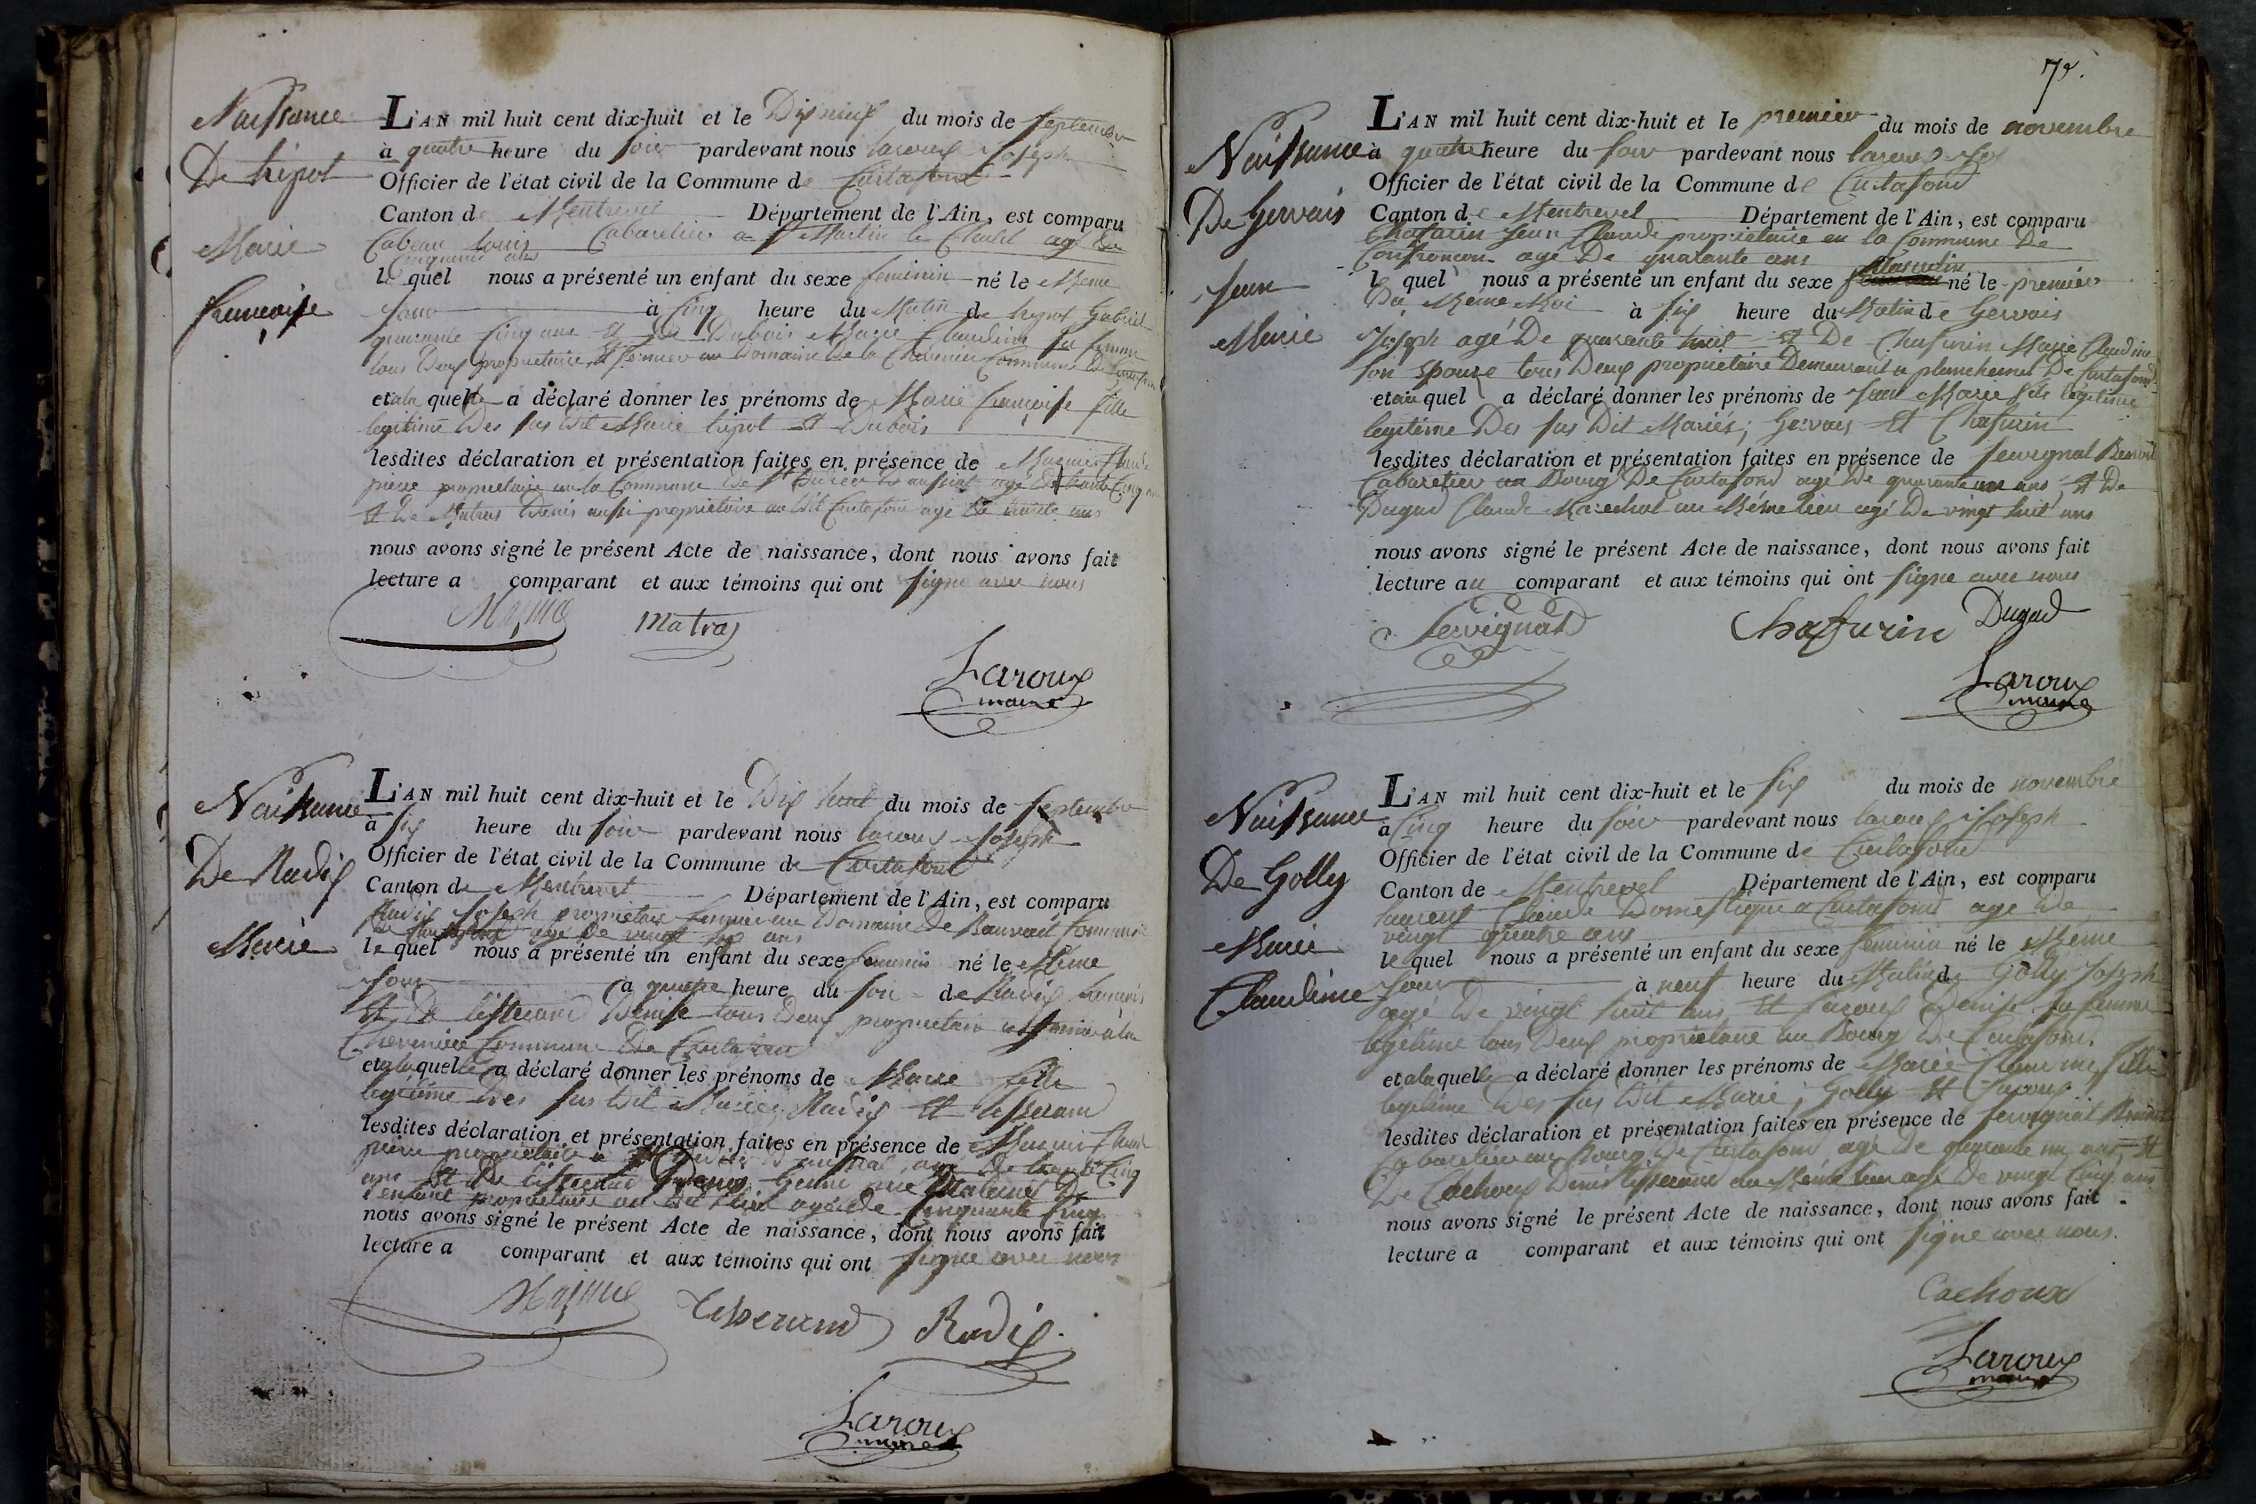 Naissance
De
Marie
francoise
L'AN mil huit cent dix-huit et le Dix neuf du mois de septembre
à quatre heure du soir pardevant nous laroux Joseph
Officier de l'état civil de la Commune de Curtafond
Canton de Montrevel Département de l'Ain, est comparu
Louis Cabaretier a St Martin le Chatel agé de
Cinquante ans
le quel nous a présenté un enfant du sexe feminin né le Meme
Jour à Cinq heure du Matin de Gabriel
quarante Cinq ans Et de Dubois Marie Claudine sa femme
tous Deux proprietaire et fermier au Domaine de la Commune De
et a la quelle a déclaré donner les prénoms de Marie francoise fille
legitime Des sus dit Marié Et Dubois
lesdites déclaration et présentation faites en présence de Claude
pierre proprietaire en la Commune De St agé De trante Cinq ans
Et De Matras Denis aussi proprietaire au dit Curtafond agé De trante ans
nous avons signé le présent Acte de naissance, dont nous avons fait
lecture a comparant et aux témoins qui ont signe avec nous
Matras
Laroux
maire
Naissance
De Radix
Marie
L'AN mil huit cent dix-huit et le Dix huit du mois de septembre
à six heure du soir pardevant nous laroux Joseph
Officier de l'état civil de la Commune de Curtafond
Canton de Montrevel Département de l'Ain, est comparu
Radix Joseph proprietaire fermier au Domaine de Commune
De Curtafond agé De vingt ans
le quel nous a présenté un enfant du sexe feminin né le Même
Jour a quatre heure du soir de Radix
Et De tisserand Denise tous Deux proprietaire et fermier à la
Commune De Curtafond
et a la quelle a déclaré donner les prénoms de Marie fille
legitime Des sus dit Mariés Radix Et tisserand
lesdites déclaration et présentation faites en présence de Claude
pierre proprietaire a St agé De trante Cinq
ans Et De tisserand
l'enfant proprietaire au dit lieu agé de Cinquante Cinq
nous avons signé le présent Acte de naissance, dont nous avons fait
lecture a comparant et aux témoins qui ont signe avec nous
tisserand Radix
Laroux
maire
Naissance
De Gervais
Jean
Marie
L'AN mil huit cent dix-huit et le premier du mois de novembre
à quatre heure du soir pardevant nous laroux Jph
Officier de l'état civil de la Commune de Curtafond
Canton de Montrevel Département de l'Ain, est comparu
Chafurin Jean Claude proprietaire en la Commune De
Confrançon agé De quarante ans
l quel nous a présenté un enfant du sexe Masculin né le premier
Du Même Moi à six heure du Matin de Gervais
Joseph agé De quarante huit Et De Chafurin Marie Claudine
son Epouze tous Deux proprietaire Demeurant a De Curtafond
et au quel a déclaré donner les prénoms de Jean Marie fils légitime
legitime Des sus Dit Mariés, Gervais Et Chafurin
lesdites déclaration et présentation faites en présence de Sevignat Benoit
Cabaretier au Bourg De Curtafond agé De quarante un ans, Et De
Dugad Claude Marechal au Même lieu agé De vingt huit ans
nous avons signé le présent Acte de naissance, dont nous avons fait
lecture au comparant et aux témoins qui ont signe avec nous
Sevignat Chaffurin Dugad
Laroux
maire
Naissance
De Golly
Marie
Claudine
L'AN mil huit cent dix-huit et le six du mois de novembre
à Cinq heure du soir pardevant nous laroux Joseph
Officier de l'état civil de la Commune de Curtafond
Canton de Montrevel Département de l'Ain, est comparu
laurent Claude Domestique a Curtafond agé De
vingt quatre ans
le quel nous a présenté un enfant du sexe feminin né le Meme
Jour à neuf heure du Matin de Golly Joseph
agé De vingt huit ans Et Denise sa femme
legitime tous Deux proprietaire au Bourg De Curtafond
et a la quelle a déclaré donner les prénoms de Marie Claudine fille
legitime Des sus Dit Marié, Golly Et
lesdites déclaration et présentation faites en présence de Sevignat Benoit
Cabaretier au Bourg De Curtafond agé De quarante un ans Et
De Cachoux Denis tisserand au Même lieu agé De vingt Cinq ans
nous avons signé le présent Acte de naissance, dont nous avons fait
lecture a comparant et aux témoins qui ont signe avec nous.
Cachoux
Laroux
maire